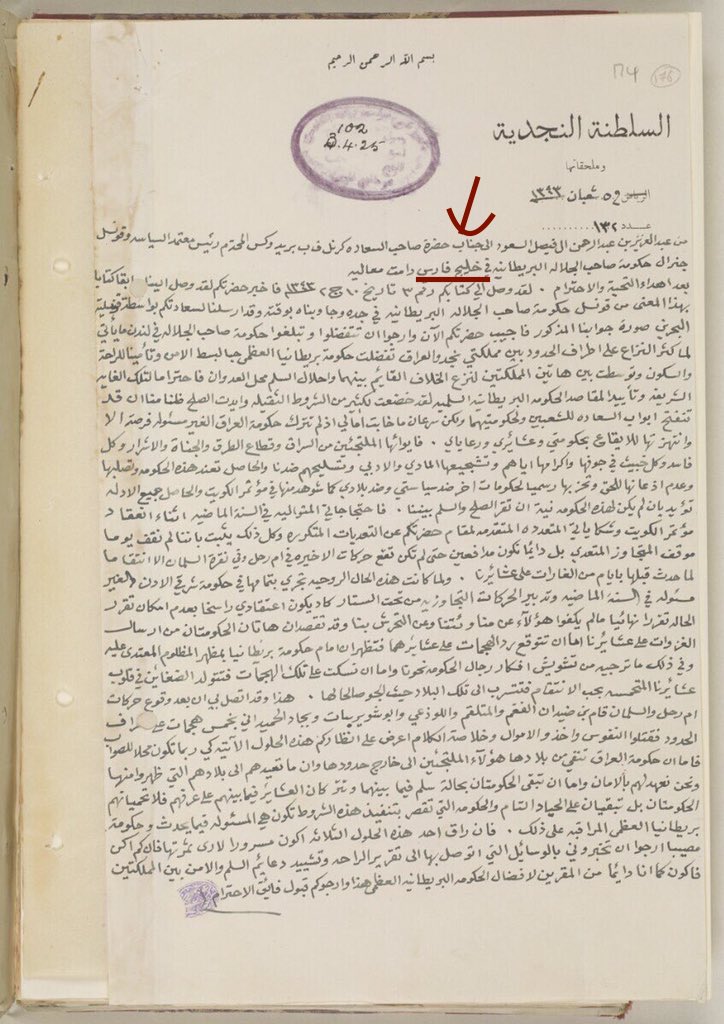 بسم الله الرحمن الرحيم
176
السلطنة النجدية
وملحقاتها
الرياض ٥ شعبان ١٣٤٣
102
3.4.25
عدد ١٣٢
من عبدالعزيز بن عبدالرحمن ال فيصل السعود الى جناب حضرة صاحب السعاده كرنل ف ب بريدوكس المحترم رئيس معتمد السياسه وقونسل
جنرال حكومة صاحب الجلاله البريطانيه في خليج فارس دامت معاليه
بعد اهداء التحية والاحترام . لقد وصل الي كتابكم رقم ٣ تاريخ ١٠ ١٣٤٣ فاخبر حضرتكم لقد وصل الينا ابقا كتابا
بهذا المعنى من قونسل حكومة صاحب الجلاله البريطانيه في جده وجاوبناه بوقته وقد ارسلنا لسعادتكم بواسطة
البحرين صورة جوابنا المذكور فاجيب حضرتكم الآن وارجوا ان تتفضلوا وتبلغوا حكومة صاحب الجلاله في لندن ماياتي
لما كثر النزاع على اطراف الحدود بين مملكتي نجد والعراق تفضلت حكومة بريطانيا العظمى حبا لبسط الامن وتأمينا للراحة
والسكون وتوسطت بين هاتين المملكتين لنزع الخلاف القايم بينهما واحلال السلم محل العدوان فاحتراما لتلك الغايه
الشريفه وتأييدا لمقاصد الحكومه البريطانيه السلميه لقد خضعت لكثير من الشروط الثقيله وايدت الصلح ظنا منا ان قد
تنفتح ابواب السعاده للشعبين ولحكومتيهما ولكن سرعان ما خابت امالي اذ لم تترك حكومة العراق الغير مسئوله فرصة الا
وانتهزتها للايقاع بحكومتي وعشائري ورعاياي . فايوائها الملتجئين من السراق وقطاع الطرق والجناة والاشرار وكل
فاسد وكل خبيث في جوفها واكرامها اياهم وتشجيعها المادي والادبي وتسليحهم ضدنا والحاصل تعند هذه الحكومه وتصلبها
وعدم اذعانها للحق وتحزبها رسميا لحكومات اخر ضد سياستي وضد بلادي كما شوهد منها في مؤتمر الكويت والحاصل جميع الادله
تؤيد بان لم يكن لهذه الحكومه نية ان تقر الصلح والسلم بيننا . فاحتجاجاتي المتواليه في السنة الماضيه اثناء انعقاد
مؤتمر الكويت وشكاياتي المتعدده المتقدمه لمقام حضرتكم عن التعديات المتكرره وكل ذلك يثبت باننا لم نقف يوما
موقف المتجاوز المتعدي بل دائما نكون مدافعين حتى لم تكن تقع حركات الاخيره في ام رحل وفي نقرة السلمان الا انتقاما
لما حدث قبلها بايام من الغارات على عشائرنا . ولما كانت هذه الحال الروحيه تجري بتمامها في حكومة شرقي الاردن الغير
مسئوله في السنة الماضيه وتدبير الحركات التجاوزيه من تحت الستار كاد يكون اعتقادي راسخا بعدم امكان تقرر
الحاله تقررا نهائيا مالم يكفوا هؤلاء عن مناوئتنا وعن التحرش بنا وقد تقصدان هاتان الحكومتان من ارسال
الغزوات على عشائرنا اما ان تتوقع رد الهجمات على عشائرهما فتظهران امام حكومة بريطانيا بمظهر المظلوم المعتدى عليه
وفي ذلك ما ترجيه من تشويش افكار رجال الحكومه نحونا واما ان نسكت على تلك الهجمات فتتولد الضغائن في قلوب
عشائرنا المتحمسه بحب الانتقام فتتسرب الى تلك البلاد حيث الجو صالحا لها . هذا وقد اتصل بي ان بعد وقوع حركات
ام رحل والسلمان قام بن ضيدان الفغم والمتلقم واللوذعي وابو شويربات وبجاد الحميداني بخمس هجمات على اطراف
الحدود فقتلوا النفوس واخذو الاموال وخلاصة الكلام اعرض على انظاركم هذه الحلول الآتيه كي ربما تكون محلا للصواب
فاما ان حكومة العراق تنقي من بلادها هؤلاء الملتجئين الى خارج حدودها وان ما تعيدهم الى بلادهم التي ظهروا منها
ونحن نعهد لهم بالامان واما ان تبقى الحكومتان بحالة سلم فيما بينهما وتتركان العشاير فيما بينهم على عرفهم فلا تحميانهم
الحكومتان بل تبقيان على الحياد التام والحكومه التي تقصر بتنفيذ هذه الشروط تكون هي المسئوله فيما يحدث وحكومة
بريطانيا العظمى المراقبه على ذلك . فان راق احد هذه الحلول الثلاثه اكون مسرورا لارى ثمرتها فان لم اكن
مصيبا ارجوا ان تخبروني بالوسايل التي اتوصل بها الى تقرير الراحه وتشييد دعايم السلم والامن بين المملكتين
فاكون كما انا دايما من المقرين لافضال الحكومه البريطانيه العظمى هذا وارجوكم قبول فايق الاحترام